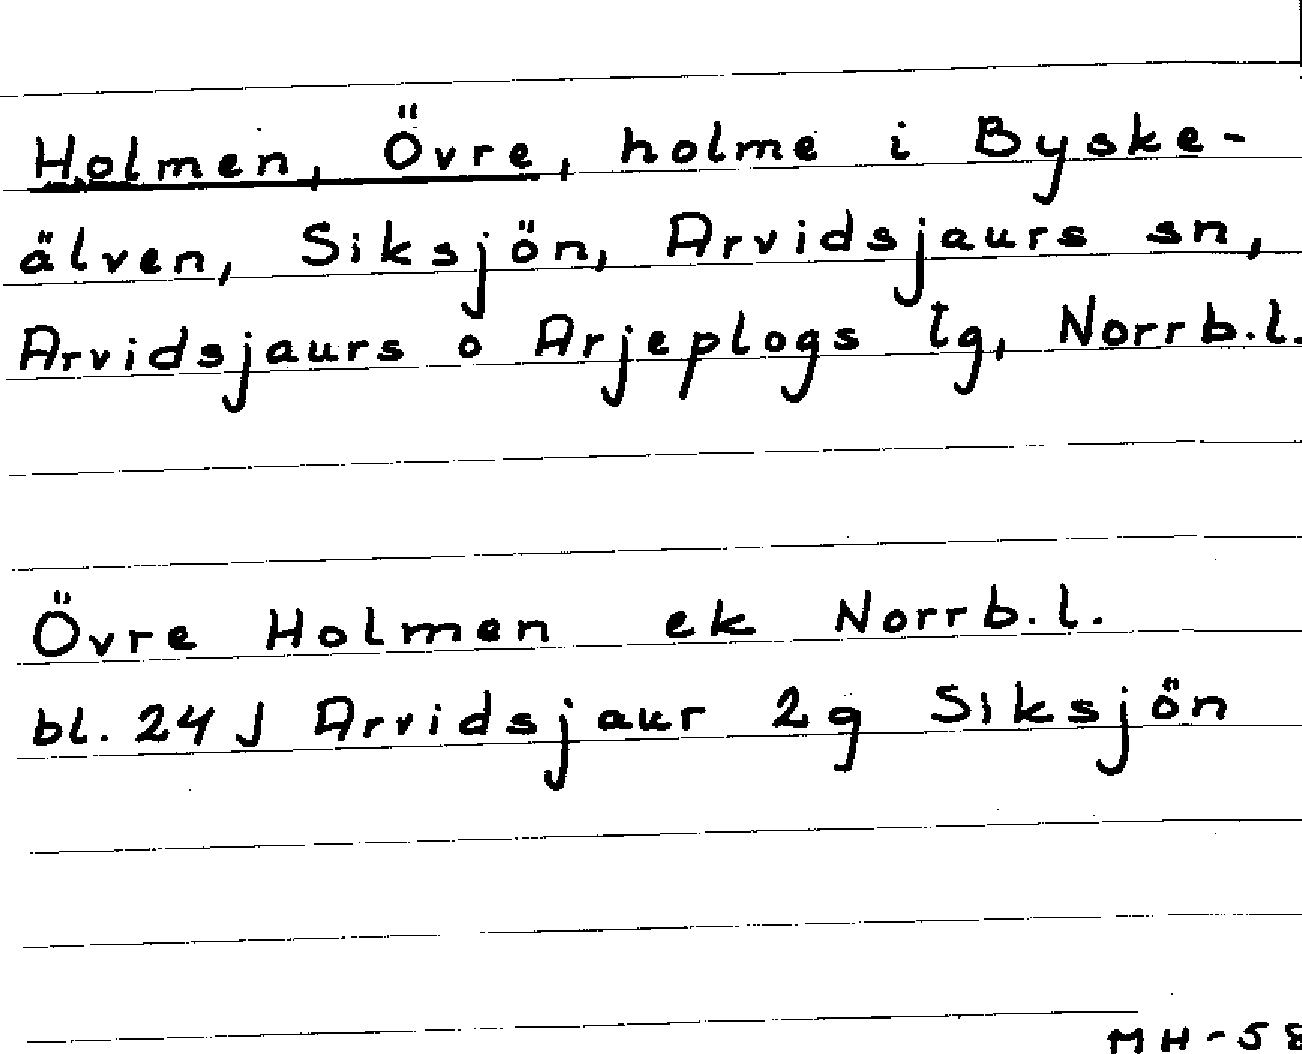 Holmen, Övre, holme i Byske-
älven, Siksjön, Arvidsjaurs sn,
Arvidsjaurs o Arjeplogs lg, Norrb.l.
Övre Holmen ek Norrb.l.
bl. 24 J Arvidsjaur 2g Siksjön
MH-58